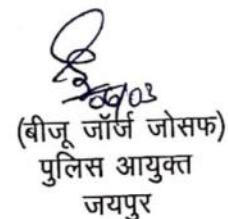 06/03
(बीजू जॉर्ज जोसफ)
पुलिस आयुक्त
जयपुर